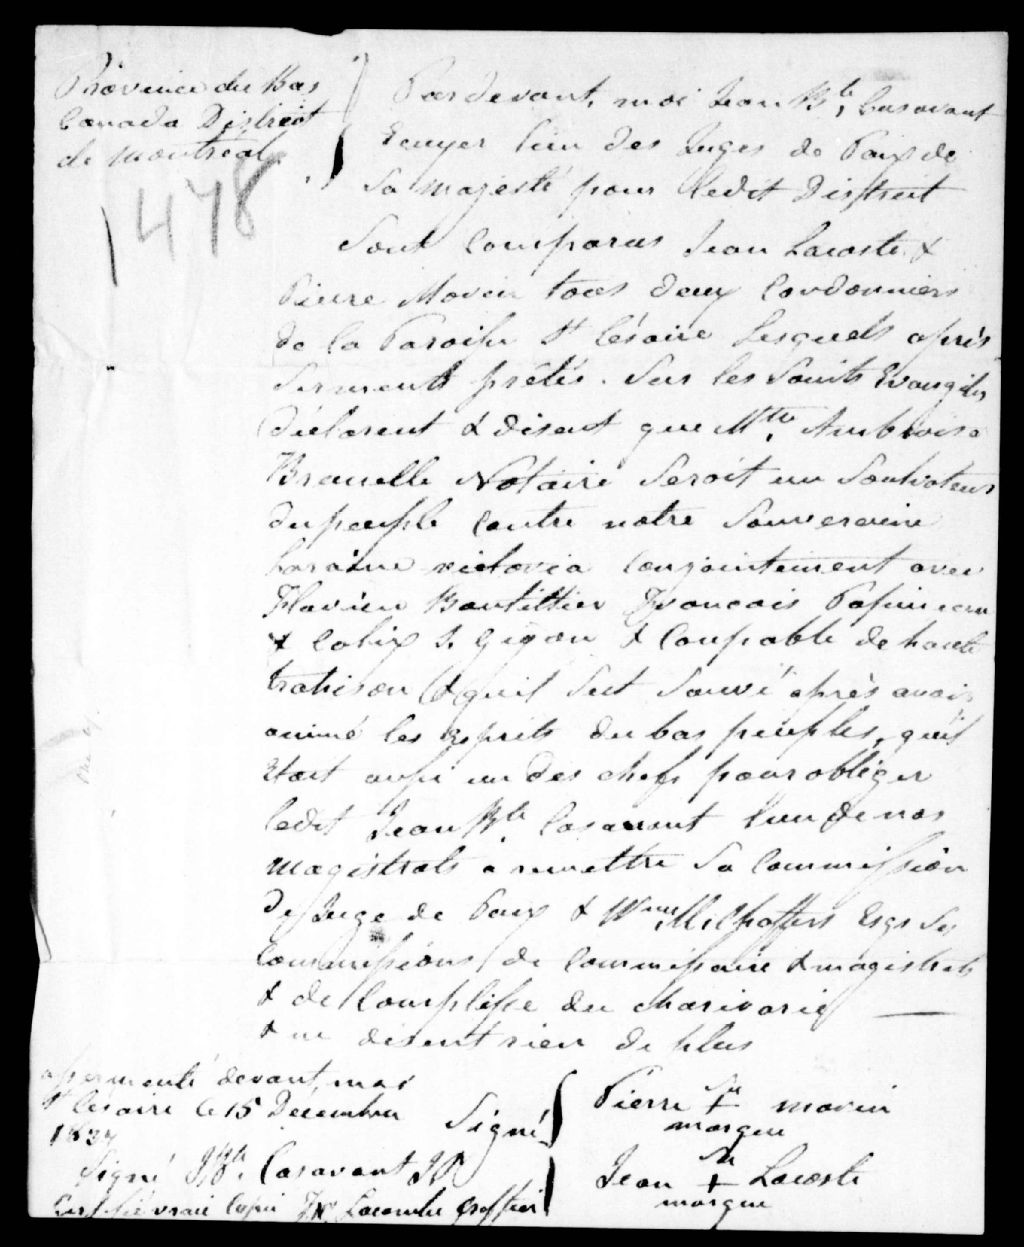 Province du Bas
Canada District
de Montréal
1478
Pardevant, moi Jean Bte, Casavant
Ecuyer l'un des Juges de Paix de
Sa Majesté pour ledit District
Sont Comparus Jean Lacoste &
Pierre Morin tous deux Cordonniers
de la Paroisse St Césaire Lesquels après
Serments prêtés. Sur les Saints Evangiles
déclarent & disent que Mtre, Ambroise
Brunelle Notaire Seroit un Soulvateur
du peuple Contre notre Souveraine
la reine victoria Conjointement avec
Flavien Bouthillier François Papineau
& Calix S. Gigon & Coupable de haute
trahison & quil Sest Sauvé après avoir
animé les Esprits du bas peuples, quil
Etoit aussi un des chefs pour obliger
ledit Jean Bte Casavant l'un de nos
magistrats a remettre Sa Commission
de Juge de Paix & Wm, M. Chaffers Esqr Ses
Commissions de Commissaire & magistrats
& de Complisse du Charivarie
& ne disent rien de plus
assermenté devant, moi
St Césaire le 15 Décembre
1837
Signé
Pierre Sa + marque morin
Signé J Bte. Casavant JP
Jean Sa + marque Lacoste
Certifié vraie Copie Fx. Lacombe Greffier